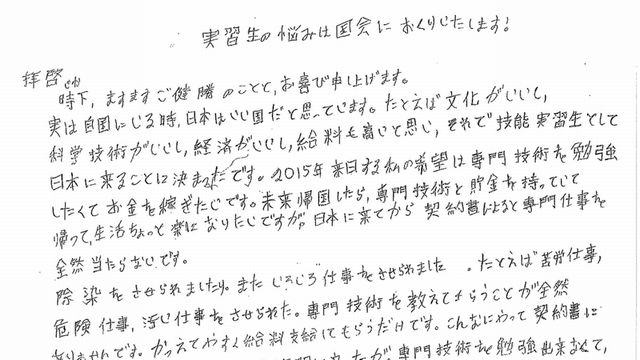 実習生の悩みは国会に おくりじたします!
拝啓
時下、ますますご健勝のことと、お喜び申し上げます。
実は自国にじる時、日本はいい国だと思っています。たとえば文化がじいし、
科学技術がじいし、経済がじいし、給料も高いと思い、それで技能実習生として
日本に来ることに決まったです。2015年来日する私の希望は専門技術を勉強
したくてお金を稼ぎたじです。未来帰国したら、専門技術と貯金を持っていて
帰って、生活ちょっと楽になりたじですが、日本に来てから 契約書によると専門仕事を
全然当たらないです。
除染をさせられましたり。また じろじろ仕事をさせられました 。たとえば苦労仕事,
危険仕事, 汚い仕事をさせられた。専門技術を教えてもらうことが全然
ありませんです。かってえやすく給料支給してもらうだけです。こんなにやって契約書に
が、専門技術を勉強出来なくて,